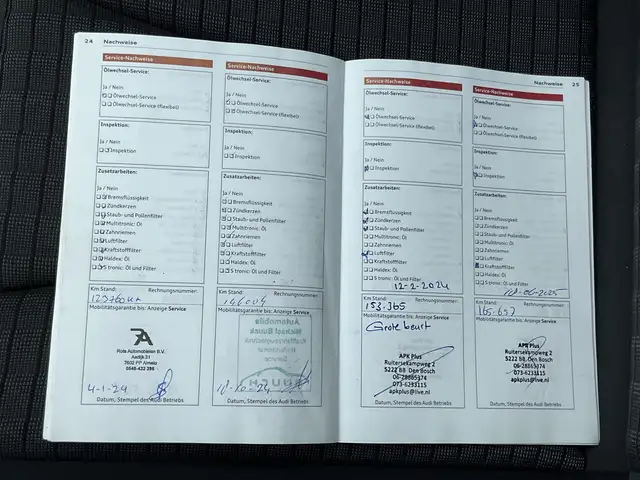 24 Nachweise
Service-Nachweise
Ölwechsel-Service:
Ja / Nein
Ölwechsel-Service
Ölwechsel-Service (flexibel)
Inspektion:
Ja / Nein
Inspektion
Zusatzarbeiten:
Ja / Nein
Bremsflüssigkeit
Zündkerzen
Staub- und Pollenfilter
Multitronic: Öl
Zahnriemen
Luftfilter
Kraftstofffilter
Haldex: Öl
S tronic: Öl und Filter
Km Stand: Rechnungsnummer:
123760 km
Mobilitätsgarantie bis: Anzeige Service
RA
Rota Automobielen B.V.
7602 PP Almelo
0546-432 286
4-1-24
Datum, Stempel des Audi Betriebs
Service-Nachweise
Ölwechsel-Service:
Ja / Nein
Ölwechsel-Service
Ölwechsel-Service (flexibel)
Inspektion:
Ja / Nein
Inspektion
Zusatzarbeiten:
Ja / Nein
Bremsflüssigkeit
Zündkerzen
Staub- und Pollenfilter
Multitronic: Öl
Zahnriemen
Luftfilter
Kraftstofffilter
Haldex: Öl
S tronic: Öl und Filter
Km Stand: Rechnungsnummer:
Mobilitätsgarantie bis: Anzeige Service
Automobile
Service
Datum, Stempel des Audi Betriebs
Nachweise 25
Service-Nachweise
Ölwechsel-Service:
Ja / Nein
Ölwechsel-Service
Ölwechsel-Service (flexibel)
Inspektion:
Ja / Nein
Inspektion
Zusatzarbeiten:
Ja / Nein
Bremsflüssigkeit
Zündkerzen
Staub- und Pollenfilter
Multitronic: Öl
Zahnriemen
Luftfilter
Kraftstofffilter
Haldex: Öl
S tronic: Öl und Filter
12-2-2024
Km Stand: Rechnungsnummer:
153-365
Mobilitätsgarantie bis: Anzeige Service
Grote beurt
APK Plus
Ruitersekampweg 2
5222 BB Den Bosch
06-28865374
073-6233115
apkplus@live.nl
Datum, Stempel des Audi Betriebs
Service-Nachweise
Ölwechsel-Service:
Ja / Nein
Ölwechsel-Service
Ölwechsel-Service (flexibel)
Inspektion:
Ja / Nein
Inspektion
Zusatzarbeiten:
Ja / Nein
Bremsflüssigkeit
Zündkerzen
Staub- und Pollenfilter
Multitronic: Öl
Zahnriemen
Luftfilter
Kraftstofffilter
Haldex: Öl
S tronic: Öl und Filter
Km Stand: Rechnungsnummer:
165-657
Mobilitätsgarantie bis: Anzeige Service
APK Plus
Ruitersekampweg 2
5222 BB Den Bosch
06-28865374
073-6233115
apkplus@live.nl
Datum, Stempel des Audi Betriebs